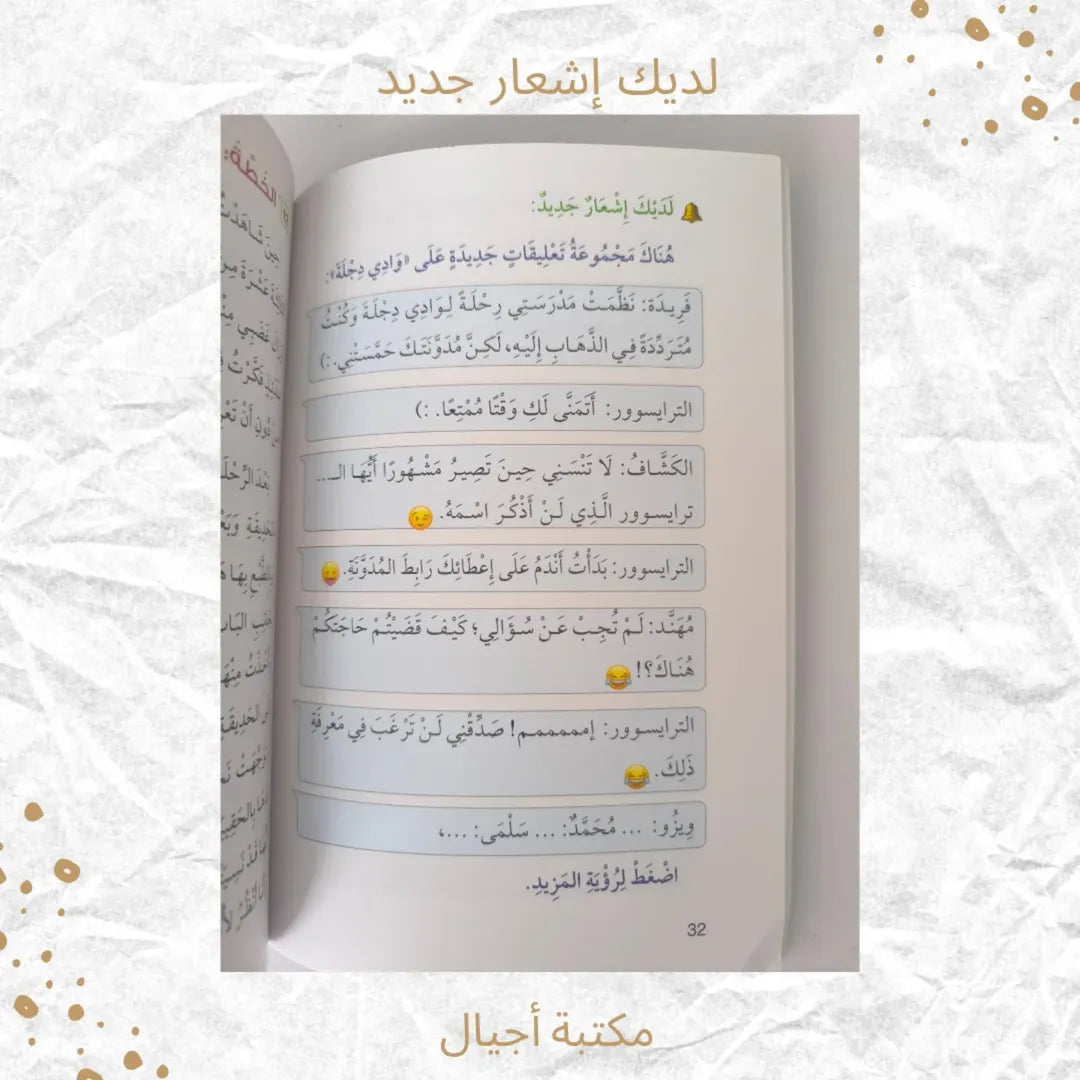 لديك إشعار جديد
لَدَيْكَ إِشْعَارٌ جَدِيدٌ:
هُنَاكَ مَجْمُوعَةُ تَعْلِيقَاتٍ جَدِيدَةٍ عَلَى «وَادِي دِجْلَةَ»:
فَرِيدَة: نَظَّمَتْ مَدْرَسَتِي رِحْلَةً لِوَادِي دِجْلَةَ وَكُنْتُ
مُتَرَدِّدَةً فِي الذَّهَابِ إِلَيْهِ، لَكِنَّ مُدَوَّنَتَكَ حَمَّسَتْنِي. :)
الترايسوور: أَتَمَنَّى لَكِ وَقْتًا مُمْتِعًا. :)
الكَشَّافُ: لَا تَنْسَنِي حِينَ تَصِيرُ مَشْهُورًا أَيُّهَا الـ...
ترايسوور الَّذِي لَنْ أَذْكُرَ اسْمَهُ. 😉
الترايسوور: بَدَأْتُ أَنْدَمُ عَلَى إِعْطَائِكَ رَابِطَ المُدَوَّنَةِ. 😛
مُهَنَّد: لَمْ تُجِبْ عَنْ سُؤَالِي؛ كَيْفَ قَضَيْتُمْ حَاجَتَكُمْ
هُنَاكَ؟! 😂
الترايسوور: إممممم! صَدِّقْنِي لَنْ تَرْغَبَ فِي مَعْرِفَةِ
ذَلِكَ. 😂
وِيزُو: ... مُحَمَّدٌ: ... سَلْمَى: ...،
اضْغَطْ لِرُؤْيَةِ المَزِيدِ.
32
الخُطَّة:
حِينَ شَاهَدْتُ
مكتبة أجيال